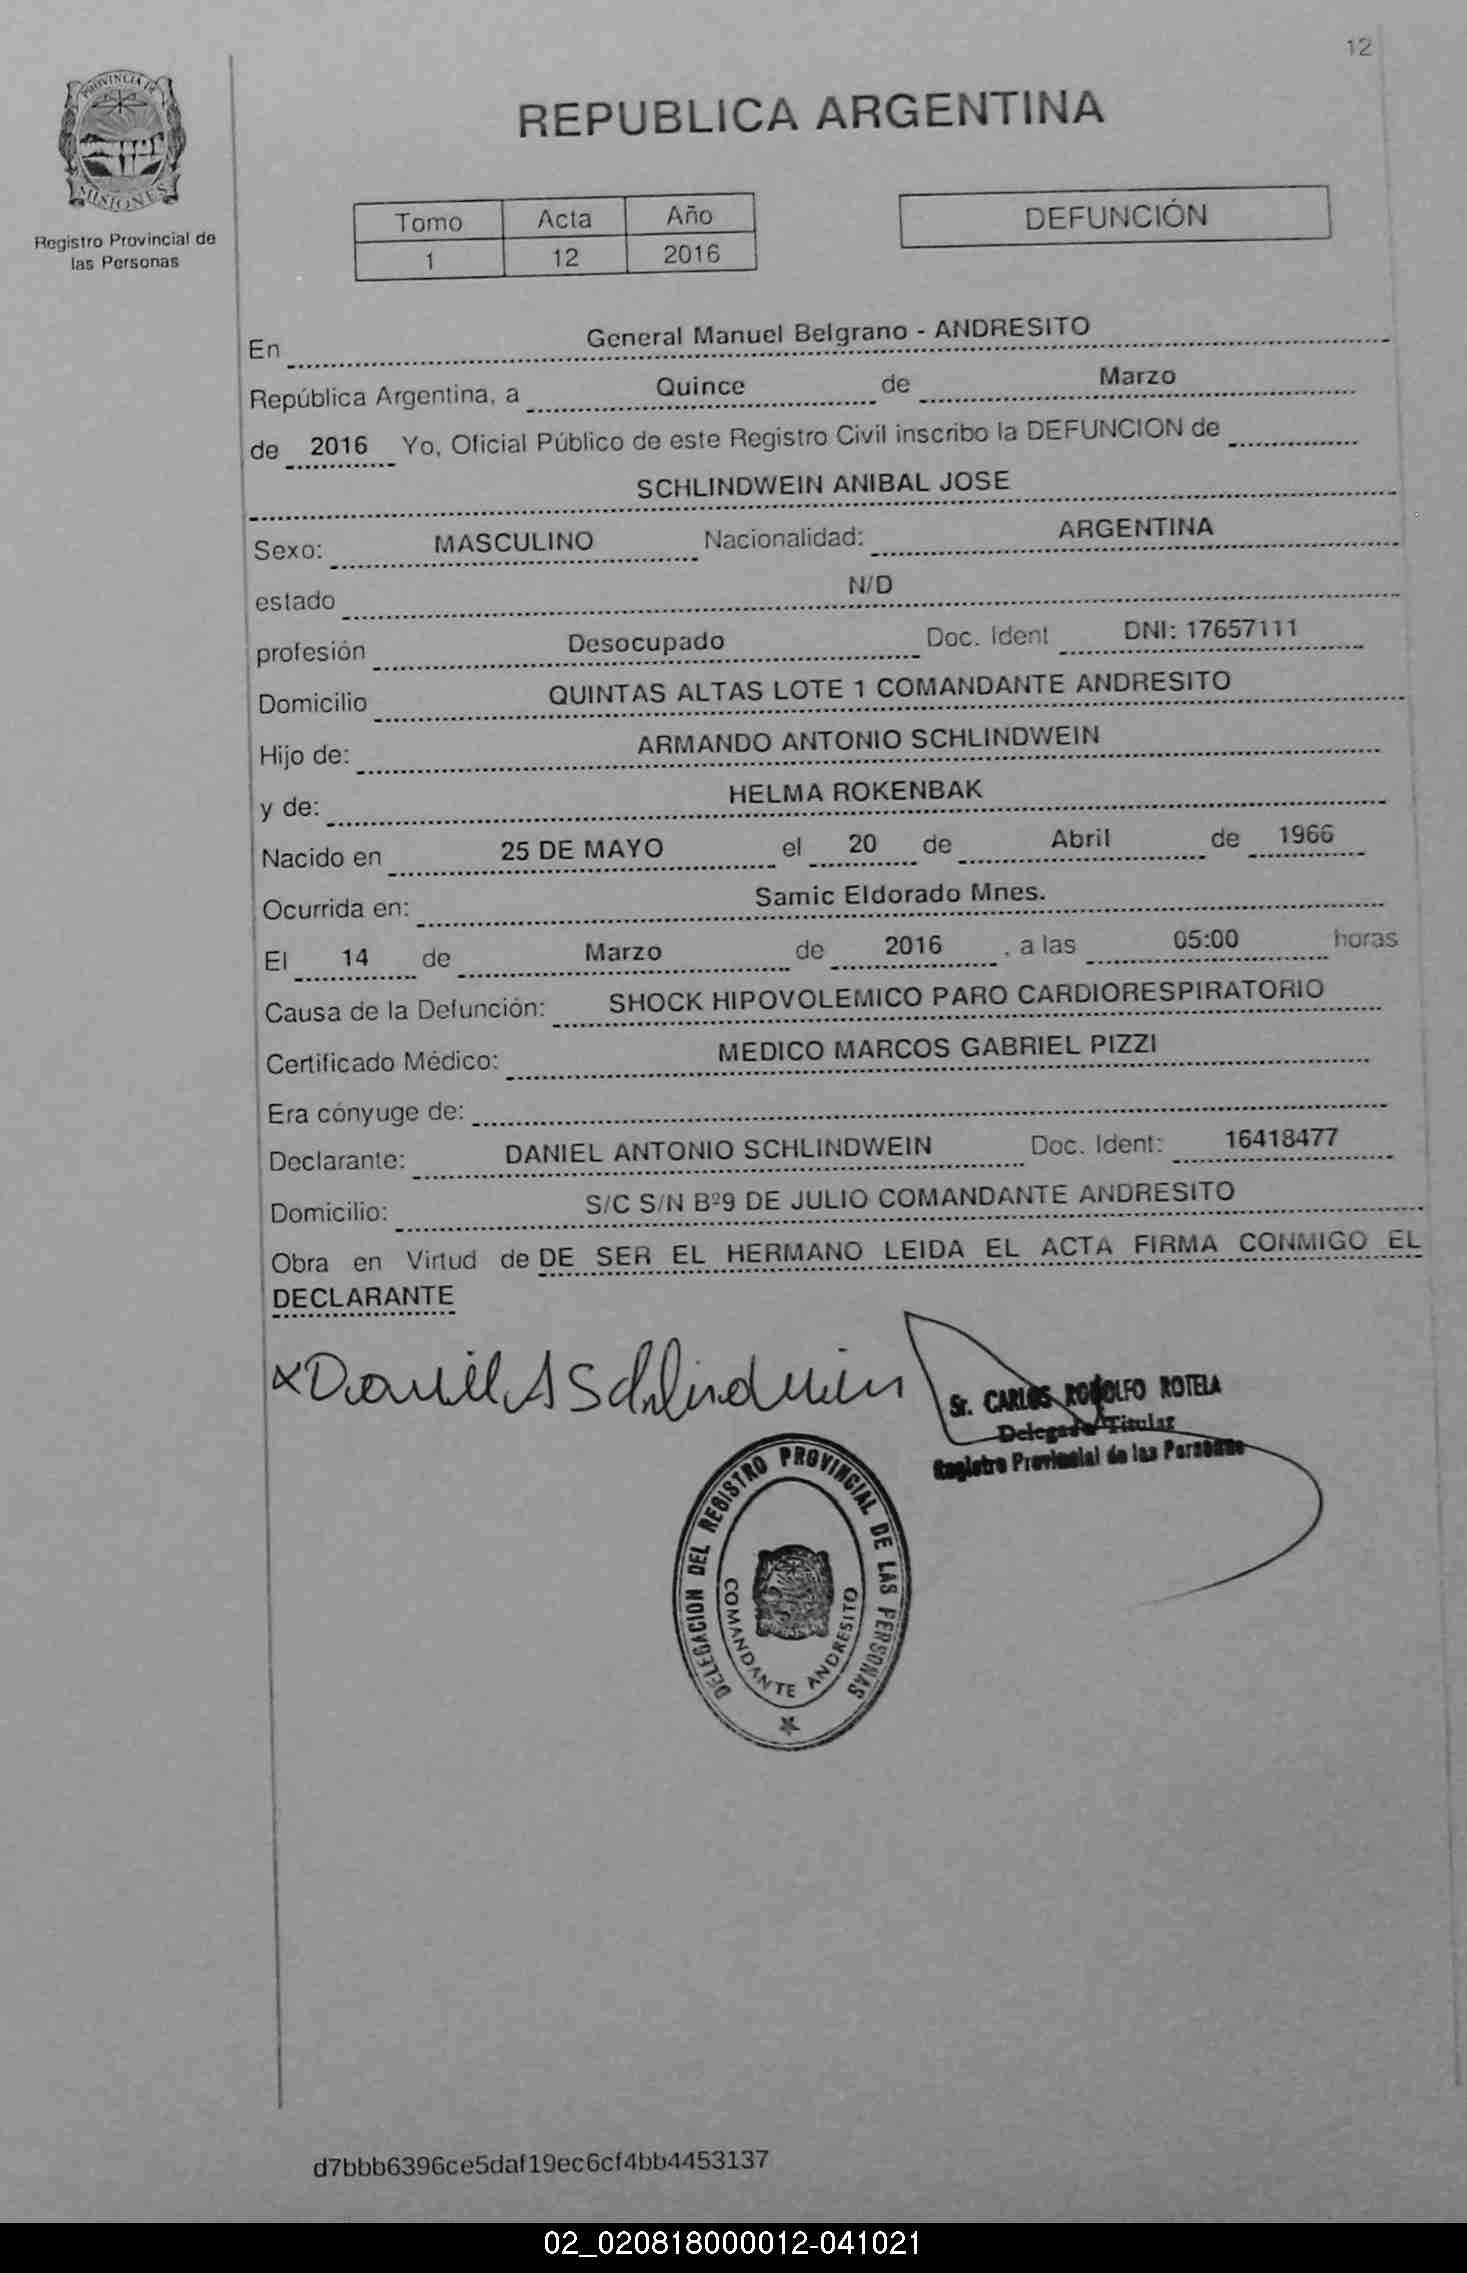 12
PROVINCIA DE
MISIONES
Registro Provincial de
las Personas
REPUBLICA ARGENTINA
Tomo Acta Año
1 12 2016
DEFUNCIÓN
En General Manuel Belgrano - ANDRESITO
República Argentina, a Quince de Marzo
de 2016 Yo, Oficial Público de este Registro Civil inscribo la DEFUNCION de
SCHLINDWEIN ANIBAL JOSE
Sexo: MASCULINO Nacionalidad: ARGENTINA
estado N/D
profesión Desocupado Doc. Ident DNI: 17657111
Domicilio QUINTAS ALTAS LOTE 1 COMANDANTE ANDRESITO
Hijo de: ARMANDO ANTONIO SCHLINDWEIN
y de: HELMA ROKENBAK
Nacido en 25 DE MAYO el 20 de Abril de 1966
Ocurrida en: Samic Eldorado Mnes.
El 14 de Marzo de 2016 , a las 05:00 horas
Causa de la Defunción: SHOCK HIPOVOLEMICO PARO CARDIORESPIRATORIO
Certificado Médico: MEDICO MARCOS GABRIEL PIZZI
Era cónyuge de:
Declarante: DANIEL ANTONIO SCHLINDWEIN Doc. Ident: 16418477
Domicilio: S/C S/N Bº9 DE JULIO COMANDANTE ANDRESITO
Obra en Virtud de DE SER EL HERMANO LEIDA EL ACTA FIRMA CONMIGO EL
DECLARANTE
x Daniel A Schlindwein
Sr. CARLOS RODOLFO ROTELA
Delegado Titular
Registro Provincial de las Personas
DELEGACION DEL REGISTRO PROVINCIAL DE LAS PERSONAS
COMANDANTE ANDRESITO
d7bbb6396ce5daf19ec6cf4bb4453137
02_020818000012-041021